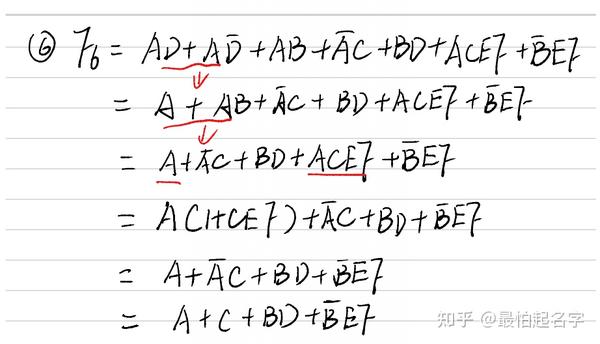 ⑥ F₆ = AD+AD̅+AB+A̅C+BD+ACEF+B̅EF
= A+AB+A̅C+BD+ACEF+B̅EF
= A+A̅C+BD+ACEF+B̅EF
= A(1+CEF)+A̅C+BD+B̅EF
= A+A̅C+BD+B̅EF
= A+C+BD+B̅EF
知乎 @最怕起名字